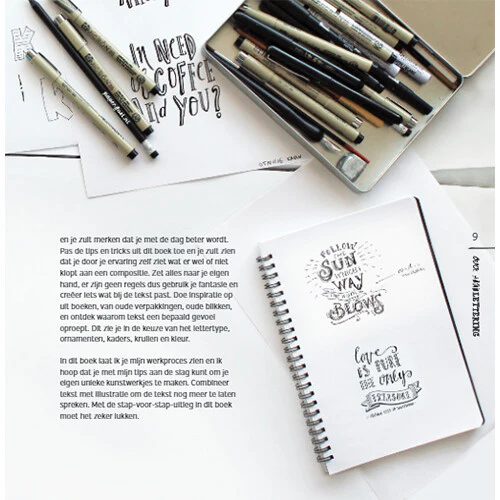 IN NEED
OF COFFEE
And YOU?
en je zult merken dat je met de dag beter wordt.
Pas de tips en tricks uit dit boek toe en je zult zien
dat je door je ervaring zelf ziet wat er wel of niet
klopt aan een compositie. Zet alles naar je eigen
hand, er zijn geen regels dus gebruik je fantasie en
creëer iets wat bij de tekst past. Doe inspiratie op
uit boeken, van oude verpakkingen, oude blikken,
en ontdek waarom tekst een bepaald gevoel
oproept. Dit zie je in de keuze van het lettertype,
ornamenten, kaders, krullen en kleur.
In dit boek laat ik je mijn werkproces zien en ik
hoop dat je met mijn tips aan de slag kunt om je
eigen unieke kunstwerkjes te maken. Combineer
tekst met illustratie om de tekst nog meer te laten
spreken. Met de stap-voor-stap-uitleg in dit boek
moet het zeker lukken.
FOLLOW
THE
SUN
WHICH
WAY
BLOWS
love
IS PURE
THE only
TREASURE
9
OVER HANDLETTERING